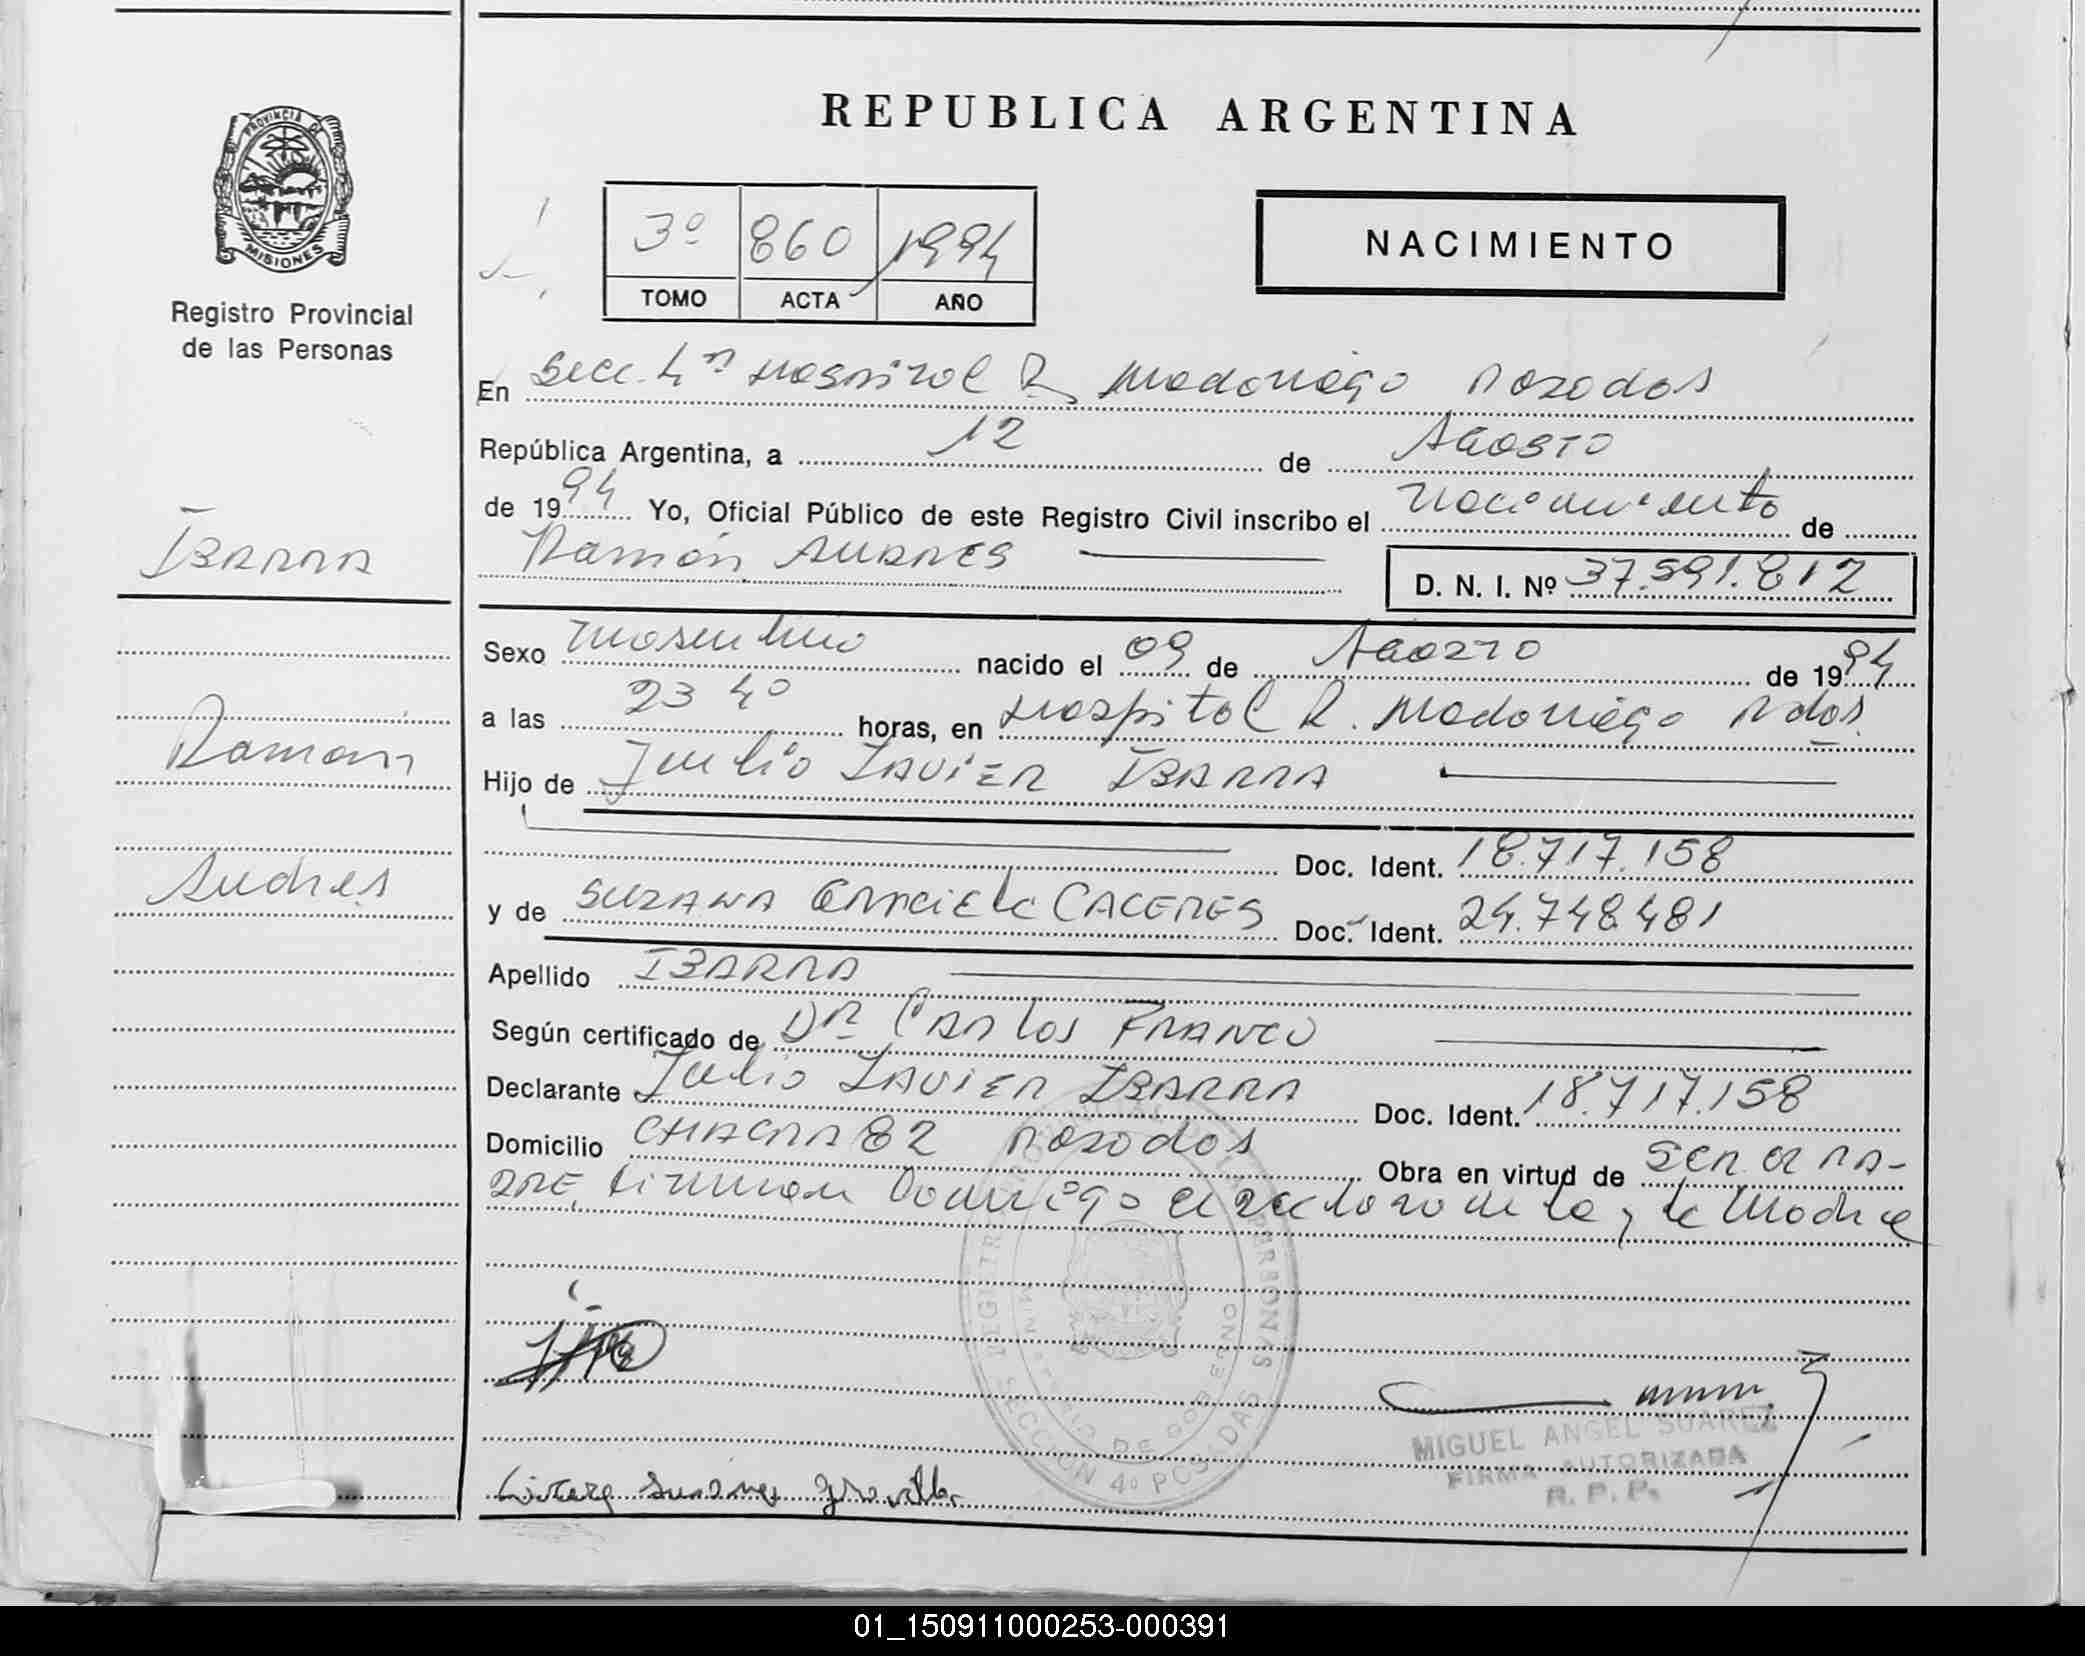 REPUBLICA ARGENTINA
PROVINCIA DE
MISIONES
Registro Provincial
de las Personas
3º 860 1994
TOMO ACTA AÑO
NACIMIENTO
En Secc. 4ª Hospital R. Madariaga Posadas
República Argentina, a 12 de Agosto
de 1994 Yo, Oficial Público de este Registro Civil inscribo el nacimiento de
Ramón Andres D. N. I. Nº 37.591.812
IBARRA
Ramon
Andres
Sexo masculino nacido el 09 de Agosto de 1994
a las 23 40 horas, en Hospital R. Madariaga Pdas.
Hijo de Julio Javier IBARRA
Doc. Ident. 18.717.158
y de Susana Graciela CACERES Doc. Ident. 24.748.481
Apellido IBARRA
Según certificado de DR Carlos Franco
Declarante Julio Javier IBARRA Doc. Ident. 18.717.158
Domicilio CHACRA 82 Posadas Obra en virtud de ser el pa-
dre, firman el declarante y la Madre
REGISTRO PROVINCIAL DE LAS PERSONAS
MINISTERIO DE GOBIERNO
SECCION 4º POSADAS
MIGUEL ANGEL SUAREZ
FIRMA AUTORIZADA
R. P. P.
01_150911000253-000391